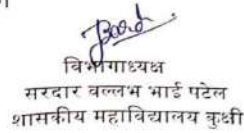 विभागाध्यक्ष
सरदार वल्लभ भाई पटेल
शासकीय महाविद्यालय कुक्षी